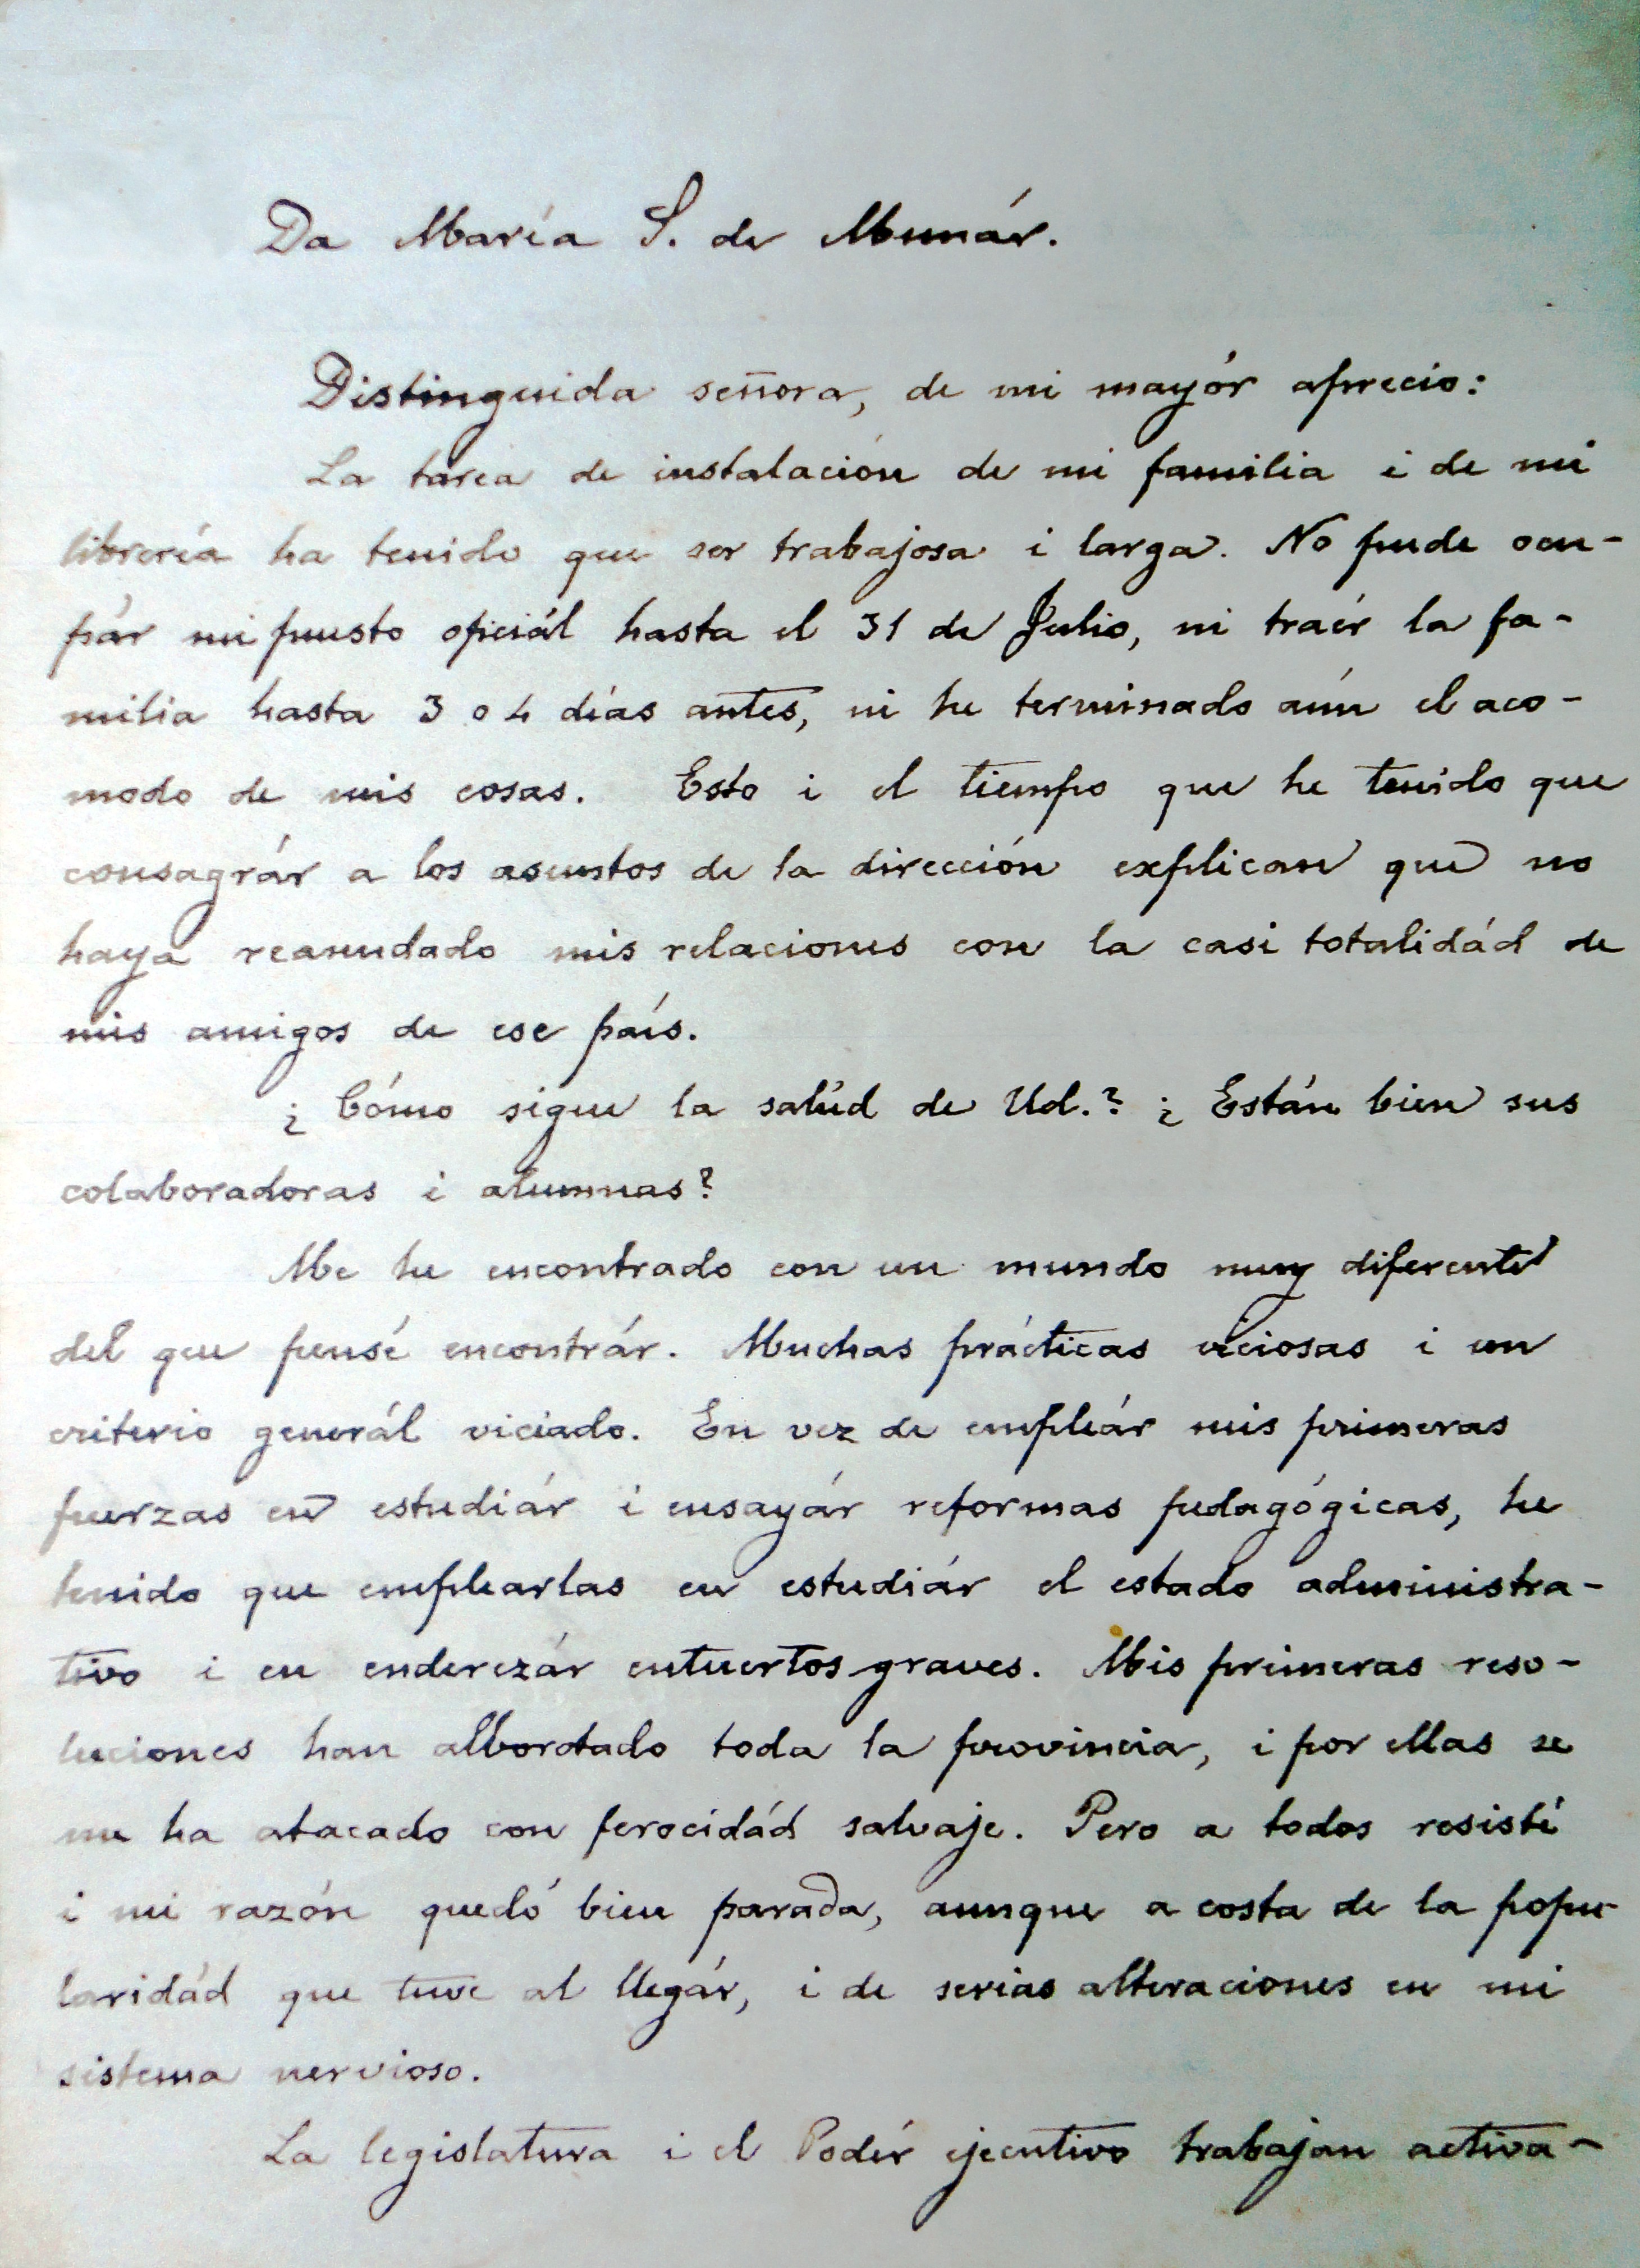 Da María S. de Munár.
Distinguida señora, de mi mayór aprecio:
La tarea de instalación de mi familia i de mi
librería ha tenido que ser trabajosa i larga. No pude ocu-
pár mi puesto oficiál hasta el 31 de Julio, ni traér la fa-
milia hasta 3 o 4 días antes, ni he terminado aún el aco-
modo de mis cosas. Esto i el tiempo que he tenido que
consagrár a los asuntos de la dirección explican que no
haya reanudado mis relaciones con la casi totalidád de
mis amigos de ese país.
¿Cómo sigue la salúd de Ud.? ¿Están bien sus
colaboradoras i alumnas?
Me he encontrado con un mundo muy diferente
del que pensé encontrár. Muchas prácticas viciosas i un
criterio generál viciado. En vez de empleár mis primeras
fuerzas en estudiár i ensayár reformas pedagógicas, he
tenido que emplearlas en estudiár el estado administra-
tivo i en enderezár entuertos graves. Mis primeras reso-
luciones han alborotado toda la provincia, i por ellas se
me ha atacado con ferocidád salvaje. Pero a todos resistí
i mi razón quedó bien parada, aunque a costa de la popu-
laridád que tuve al llegár, i de serias alteraciones en mi
sistema nervioso.
La legislatura i el Podér ejecutivo trabajan activa-